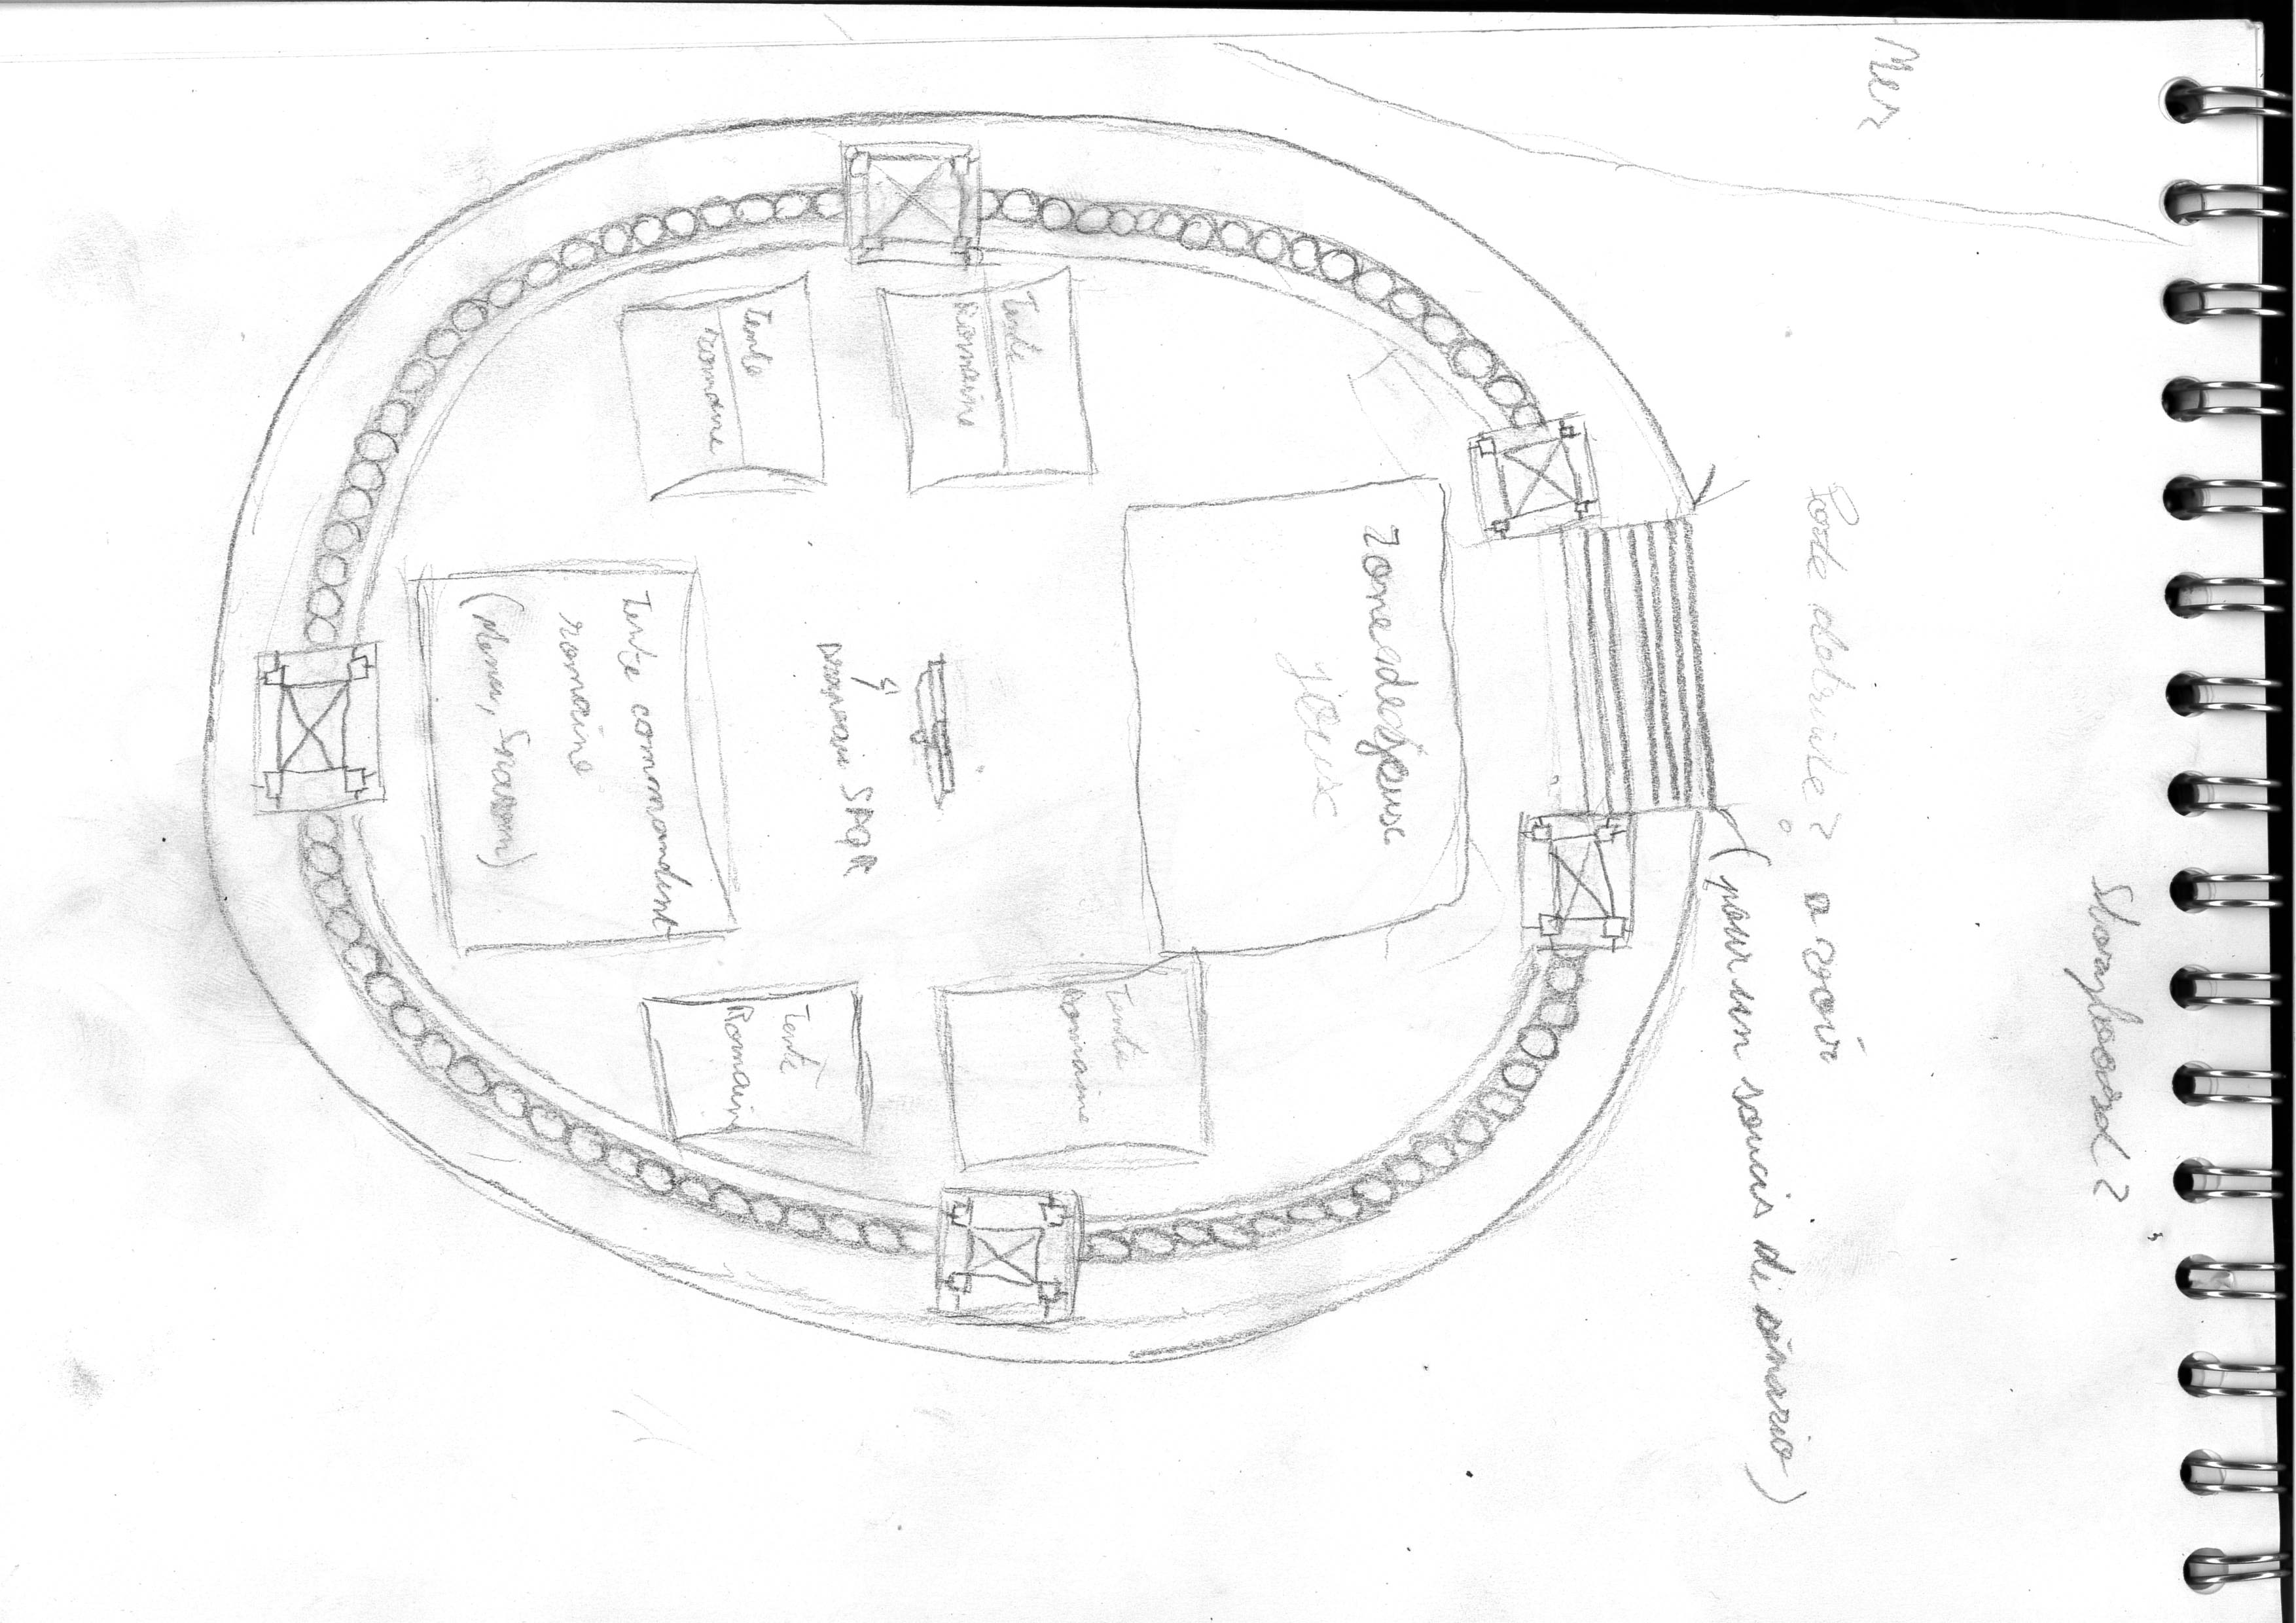 Storyboard ?
Mer
Porte detruite ? a voir
(pour un soucis de sénario)
Zone de joux
joux
Tente
Romaine
Tente
Romaine
Drapeau SPQR
Tente
romaine
Tente
Romain
Tente commandent
romaine
(Menu,